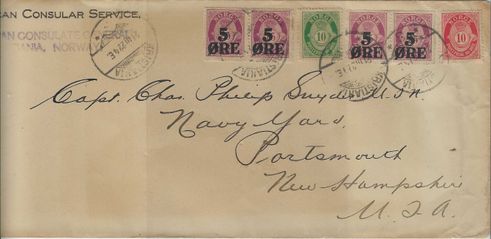 AN CONSULAR SERVICE,
AN CONSULATE GENERAL
IANIA, NORWAY
NORGE NORGE NORGE NORGE NORGE NORGE
5 5 10 5 5 10
ØRE ØRE ØRE ØRE
KRISTIANIA
Capt. Chas. Philip Snyder U.S.N.
Navy Yard,
Portsmouth
New Hampshire
U.S.A.